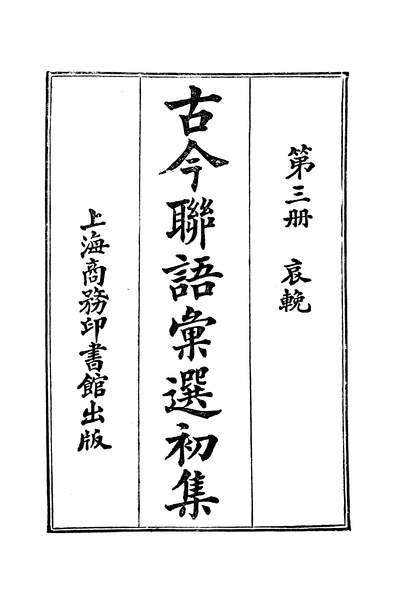 第三册 哀輓
古今聯語彙選初集
上海商務印書館出版